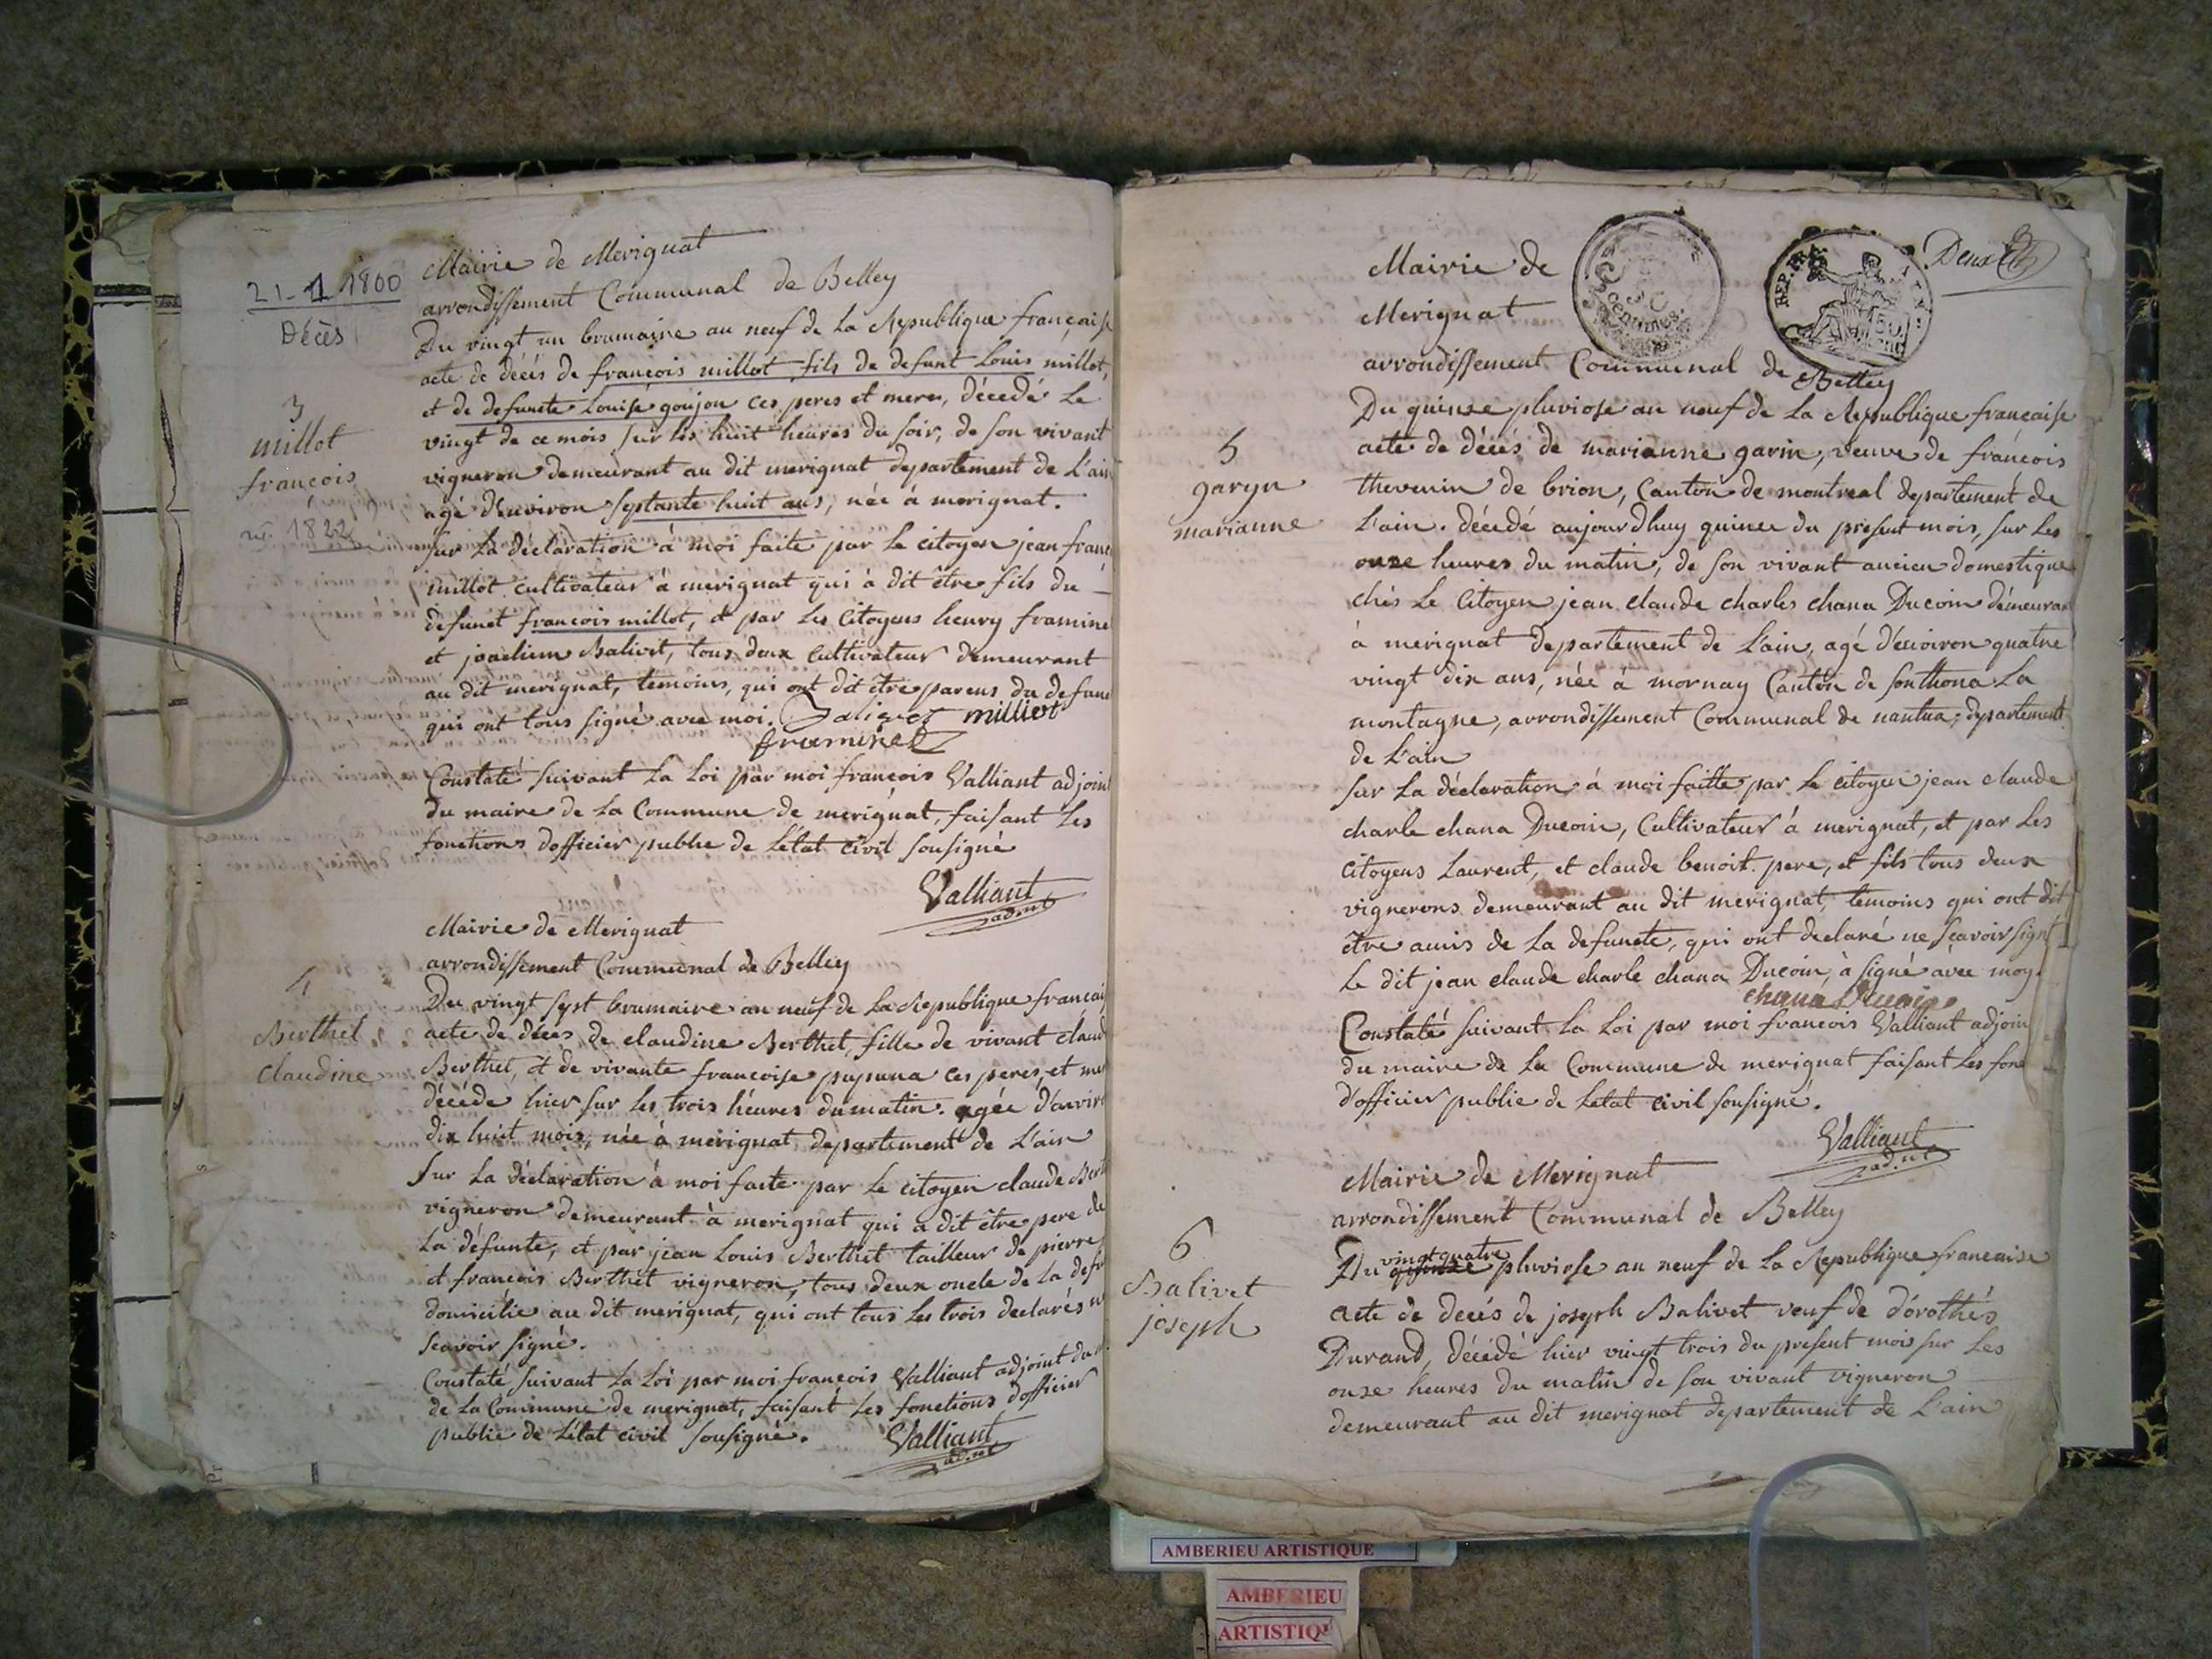 21-11 1800
Décès
Mairie de Merignat
arrondissement Communal de Belley
Du vingt un brumaire an neuf de La Republique française
acte de décés de françois millot fils de defunt Louis millot,
et de defuncte Louise goujon ces peres et meres, décedé Le
vingt de ce mois sur les huit heures du soir, de son vivant
vigneron demeurant au dit merignat departement de L'ain
agé d'environ septante huit ans, née à merignat.
3
millot
françois
1822
sur La déclaration à moi faite par Le citoyen jean franc
millot cultivateur à merignat qui à dit être fils du
defunct françois millot, et par Les Citoyens henry framine
et joachim Balivet, tous deux Cultivateur demeurant
au dit merignat, temoins, qui ont dit être parens du defunc
qui ont tous signé avec moi. Balivet milliot
framinet
Constaté suivant La Loi par moi françois Valliant adjoint
du maire de La Commune de merignat, faisant Les
fonctions d'officier public de Letat civil sousigné
Valliant
adjnt
Mairie de Merignat
arrondissement Communal de Belley
4
Berthet
claudine
Du vingt sept brumaire an neuf de La Republique françai
acte de décés de claudine Berthet, fille de vivant claud
Berthet, et de vivante françoise pupuna ces peres, et mer
décédé hier sur Les trois héures du matin. agée d'anviro
dix huit mois, née à merignat departement de L'ain
sur La déclaration à moi faite par Le citoyen claude Bert
vigneron demeurant à merignat qui a dit être pere de
La défunte, et par jean Louis Berthet tailleur de pierre
et françois Berthet vigneron, tous deux oncle de La defu
domicilié au dit merignat, qui ont tous Les trois declarés n
scavoir signé.
Constaté suivant La Loi par moi françois Valliant adjoint du m
de La Commune de merignat, faisant Les fonctions d'officier
public de Létat civil sousigné. Valliant
adjnt
Mairie de
Merignat
centimes
REP. FRA.
Deux
arrondissement Communal de Belley
Du quinze pluviose an neuf de La Republique française
5
garyn
marianne
acte de décés de marianne garin, veuve de françois
thevenin de brion, Canton de montreal departement de
L'ain. décedé aujourdhuy quinze du present mois, sur Les
onze heures du matin, de son vivant ancien domestique
chés Le Citoyen jean claude charles chana Ducoin démeuran
à merignat departement de L'ain, agé d'environ quatre
vingt dix ans, née à mornay Canton de sonthona La
montagne, arrondissement Communal de nantua, departement
de L'ain
sur La déclaration à moi faitte par Le Citoyen jean claude
charle chana Ducoin, Cultivateur à merignat, et par Les
citoyens Laurent, et claude benoit pere, et fils tous deux
vignerons demeurant au dit merignat, temoins qui ont dit
être amis de La defuncte, qui ont declaré ne scavoir sign
Le dit jean claude charle chana Ducoin, à signé avec moy.
chana Ducoin
Constaté suivant La Loi par moi françois Valliant adjoin
du maire de La Commune de merignat faisant Les fonc
d'officier public de Letat civil sousigné.
Valliant
adjnt
Mairie de Merignat
arrondissement Communal de Belley
6
Balivet
joseph
Du vingt quatre pluviose an neuf de La Republique francaise
acte de decés de joseph Balivet veuf de dorothés
Durand, décédé hier vingt trois du present mois sur Les
onze heures du matin de son vivant vigneron
demeurant au dit merignat departement de L'ain
AMBERIEU ARTISTIQUE
AMBERIEU
ARTISTIQU